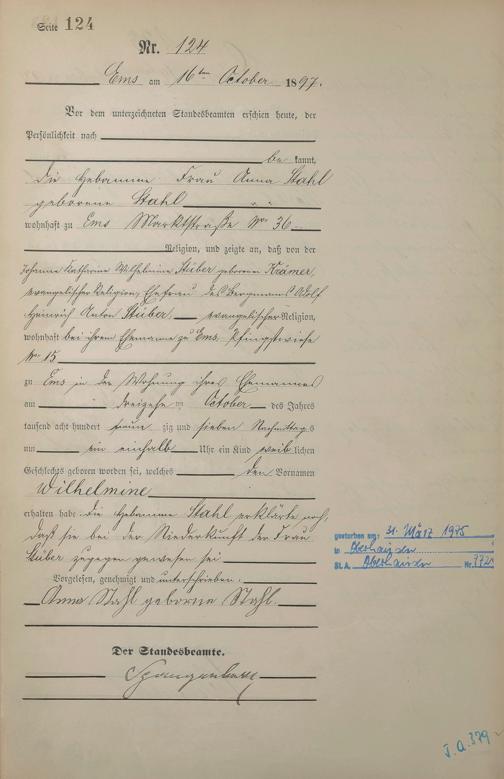 Seite 124
Nr. 124
Ems am 16ten October 1897.
Vor dem unterzeichneten Standesbeamten erschien heute, der
Persönlichkeit nach
be kannt,
die Hebamme Frau Anna Stahl
geborene Stahl
wohnhaft zu Ems Marktstraße No 36
Religion, und zeigte an, daß von der
Johanne Katharine Wilhelmine Stüber geborenen Krämer,
evangelischer Religion, Ehefrau des Bergmanns Adolf
Heinrich Anton Stüber, evangelischer Religion,
wohnhaft bei ihrem Ehemanne zu Ems, Pfingstwiese
No 15
zu Ems in der Wohnung ihres Ehemannes
am dreizehn October des Jahres
tausend acht hundert neun zig und sieben Nachmittags
um ein einhalb Uhr ein Kind weib lichen
Geschlechts geboren worden sei, welches den Vornamen
Wilhelmine
erhalten habe. Die Hebamme Stahl erklärte noch,
daß sie bei der Niederkunft der Frau
Stüber zugegen gewesen sei
Vorgelesen, genehmigt und unterschrieben.
Anna Stahl geborne Stahl.
Der Standesbeamte.
gestorben am: 31. März 1975
in Oberhausen
St.A. Oberhausen Nr.
J.A. 379